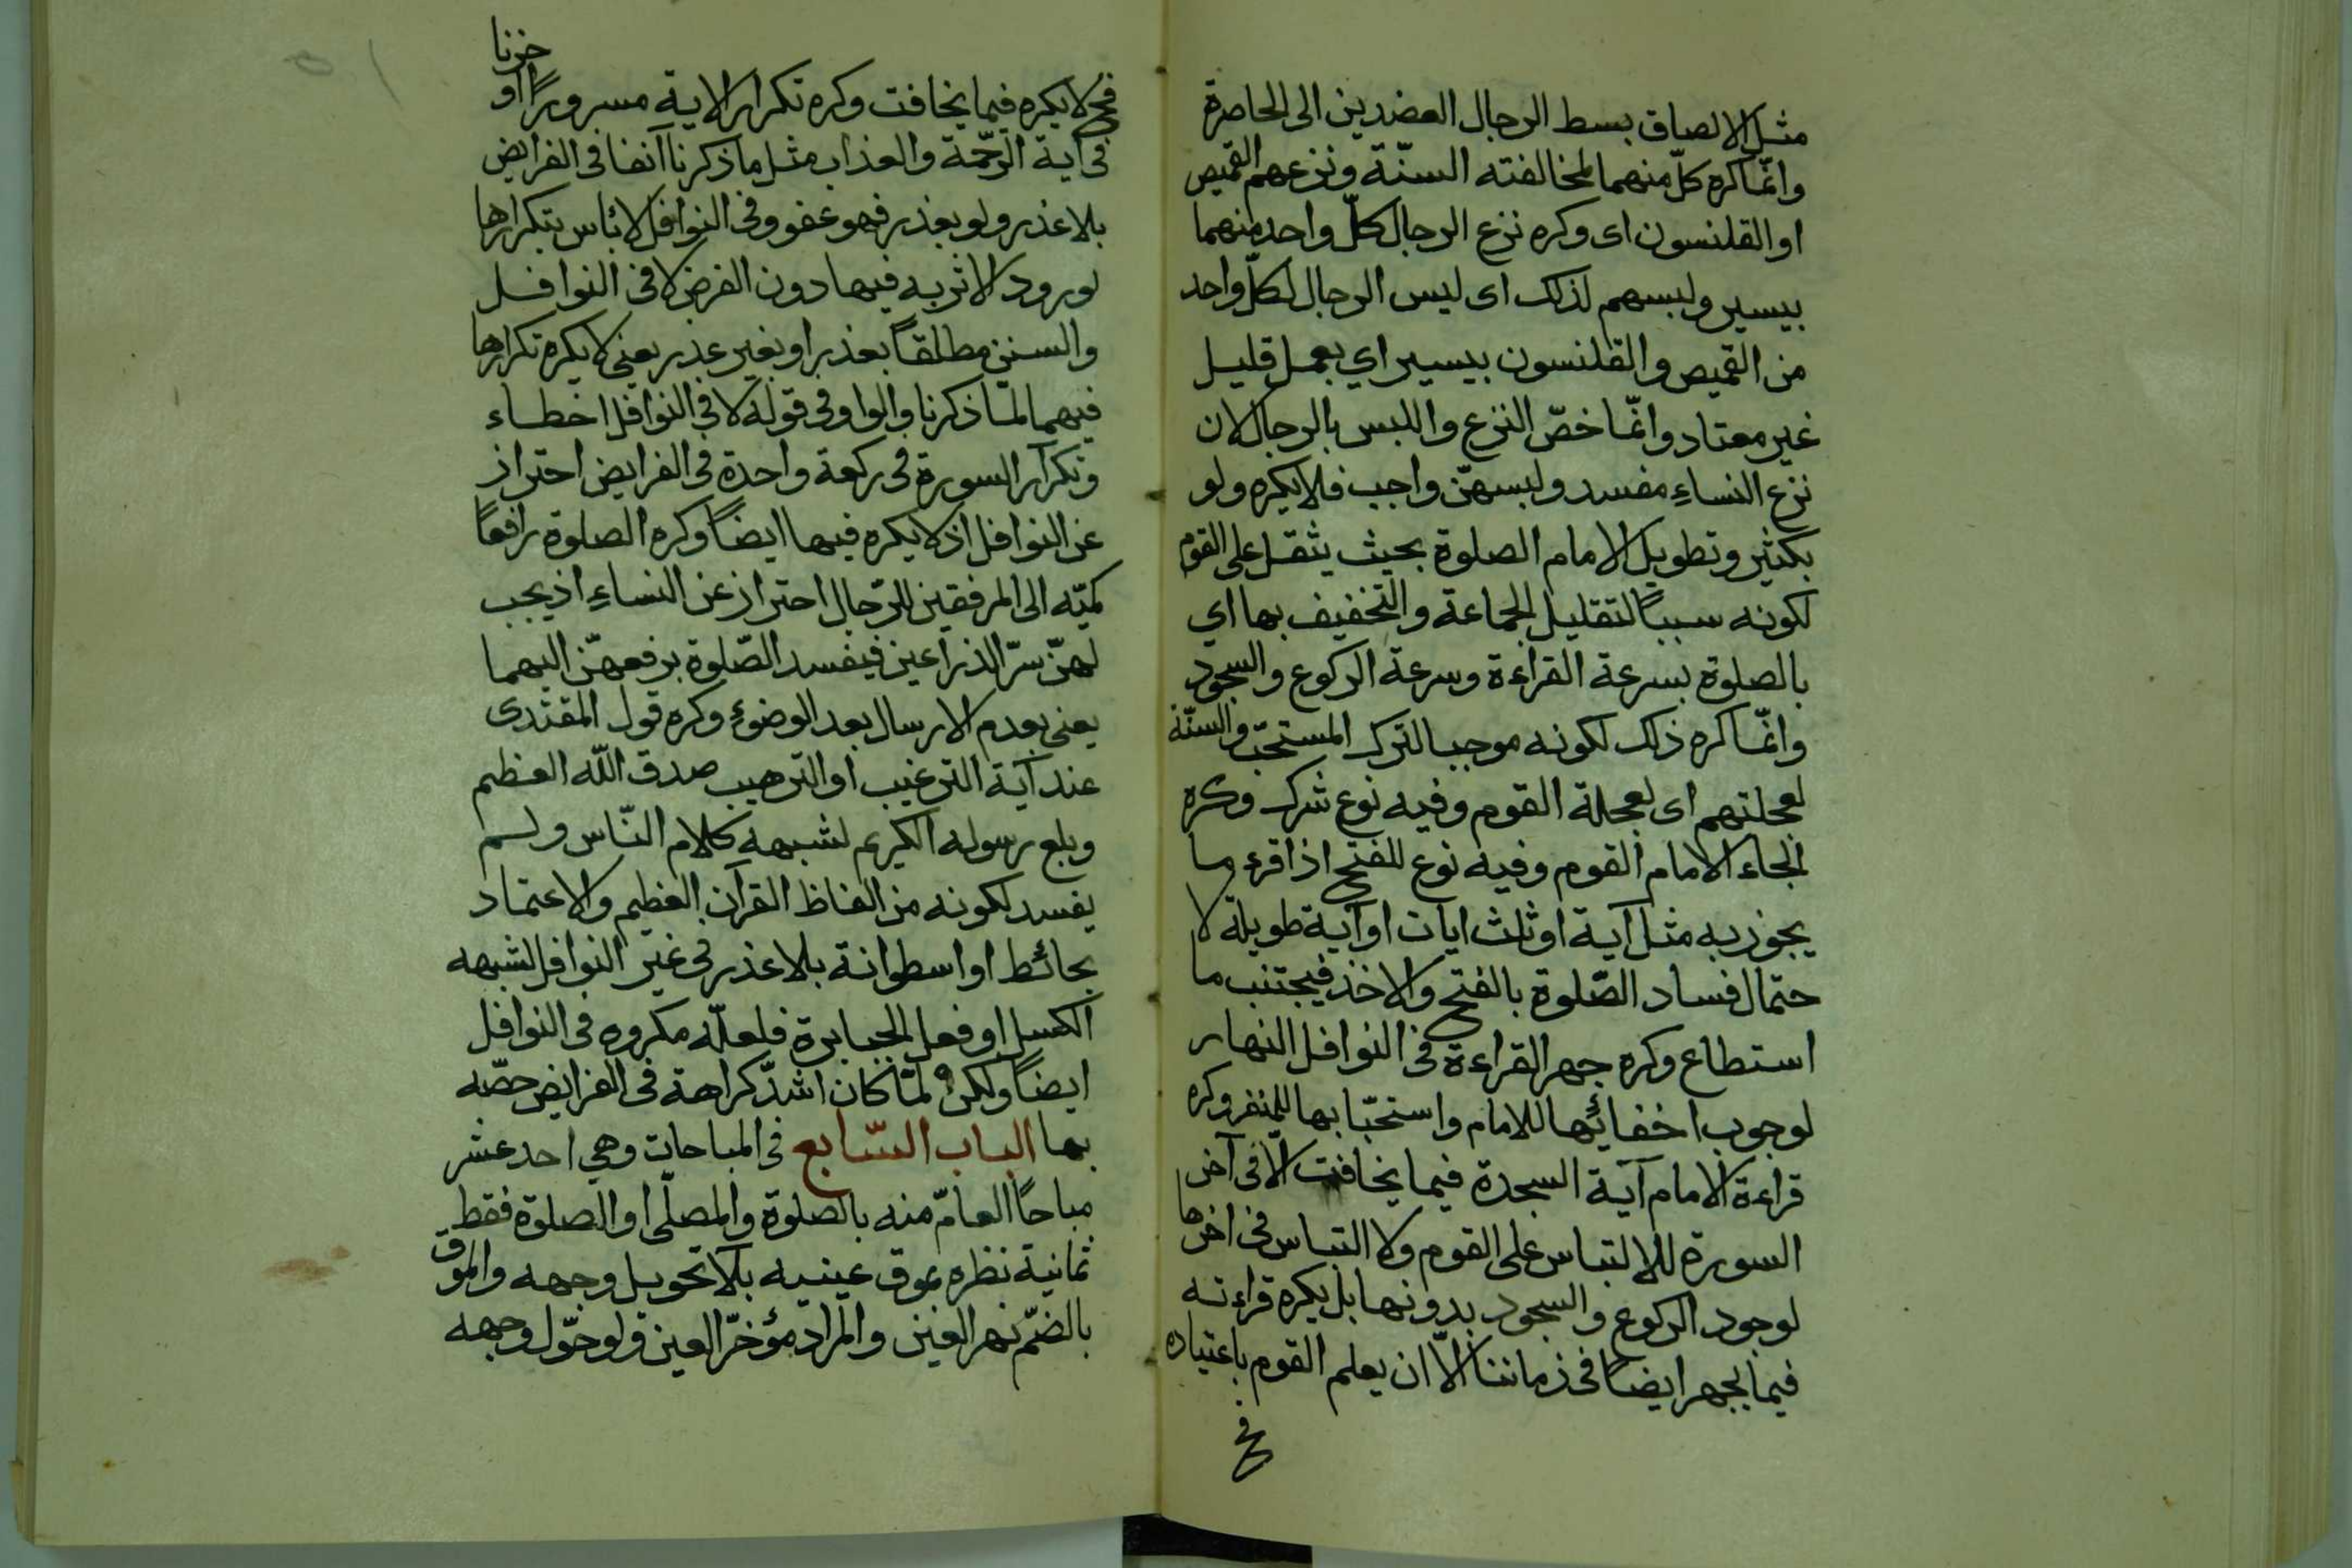 مثل الالصاق بسط الرجال العضدين الى الخاصرة
وانّما كره كلّ منهما لمخالفته السنّة ونزعهم القميص
او القلنسون اى وكره نزع الرجال كلّ واحد منهما
بيسير ولبسهم لذلك اى ليس الرجال لكلّ واحد
من القميص والقلنسون بيسير اي بعمل قليل
غير معتاد وانّما خصّ النزع واللبس بالرجال لان
نزع النساءِ مفسد ولبسهنّ واجب فلا يكره ولو
بكثير وتطويل الامام الصلوة بحيث يثقل على القوم
لكونه سبباً لتقليل الجماعة والتخفيف بها اي
بالصلوة بسرعة القراءة وسرعة الركوع والسجود
وانّما كره ذلك لكونه موجبا لترك المستحبّ والسنّة
لعجلتهم اى لعجلة القوم وفيه نوع شرك وكره
الجاء الامام القوم وفيه نوع للفتح اذا قرء ما
يجوز به مثل آية او ثلث ايات او آية طويلة لا
حتمال فساد الصّلوة بالفتح والاخذ فيجتنب ما
استطاع وكره جهر القراءة فى النوافل النهار
لوجوب اخفائها للامام واستحبّا بها للمنفر وكره
قراءة الامام آية السجدة فيما يخافت الّا فى آخر
السورة للالتباس على القوم ولا التباس فى اخرها
لوجود الركوع والسجود بدونها بل يكره قراءته
فيما يجهر ايضاً فى زماننا الّا ان يعلم القوم باعتياده
فح
فح لا يكره فيما يخافت وكره تكرار الاية مسروراً او حزنا
فى آية الرّحمة والعذاب مثل ما ذكرنا آنفا فى الفرايض
بلا عذر ولو بعذر فهو عفو وفى النوافل لا بأس بتكرارها
لورود الاثر به فيها دون الفرض لا فى النوافل
والسنن مطلقاً بعذر او بغير عذر يعنى لا يكره تكرارها
فيهما لما ذكرنا والواو فى قوله لا فى النوافل اخطاء
وتكرار السورة فى ركعة واحدة فى الفرايض احتراز
عن النوافل اذ لا يكره فيها ايضاً وكره الصلوة رافعاً
كميّه الى المرفقين للرّجال احتراز عن النساءِ اذ يجب
لهنّ سرّ الذراعين فيفسد الصّلوة برفعهنّ اليهما
يعنى بعدم الارسال بعد الوضوءِ وكره قول المقتدى
عند آية الترغيب او الترهيب صدق اللّه العظيم
وبلغ رسوله الكريم لشبهه كلام النّاس ولم
يفسد لكونه من الفاظ القرآن العظيم والاعتماد
بحائط او اسطوانة بلا عذر فى غير النوافل لشبهه
الكسل او فعل الجبابرة فلعلّه مكروه فى النوافل
ايضاً ولكن لمّا كان اشدّ كراهة فى الفرايض خصّه
بها الباب السّابع فى المباحات وهي احد عشر
مباحًا العامّ منه بالصلوة والمصلّى او الصلوة فقط
ثمانية نظره بموق عينيه بلا تحويل وجهه والموق
بالضمّ نهر العين والمراد مؤخرّ العين ولو حوّل وجهه